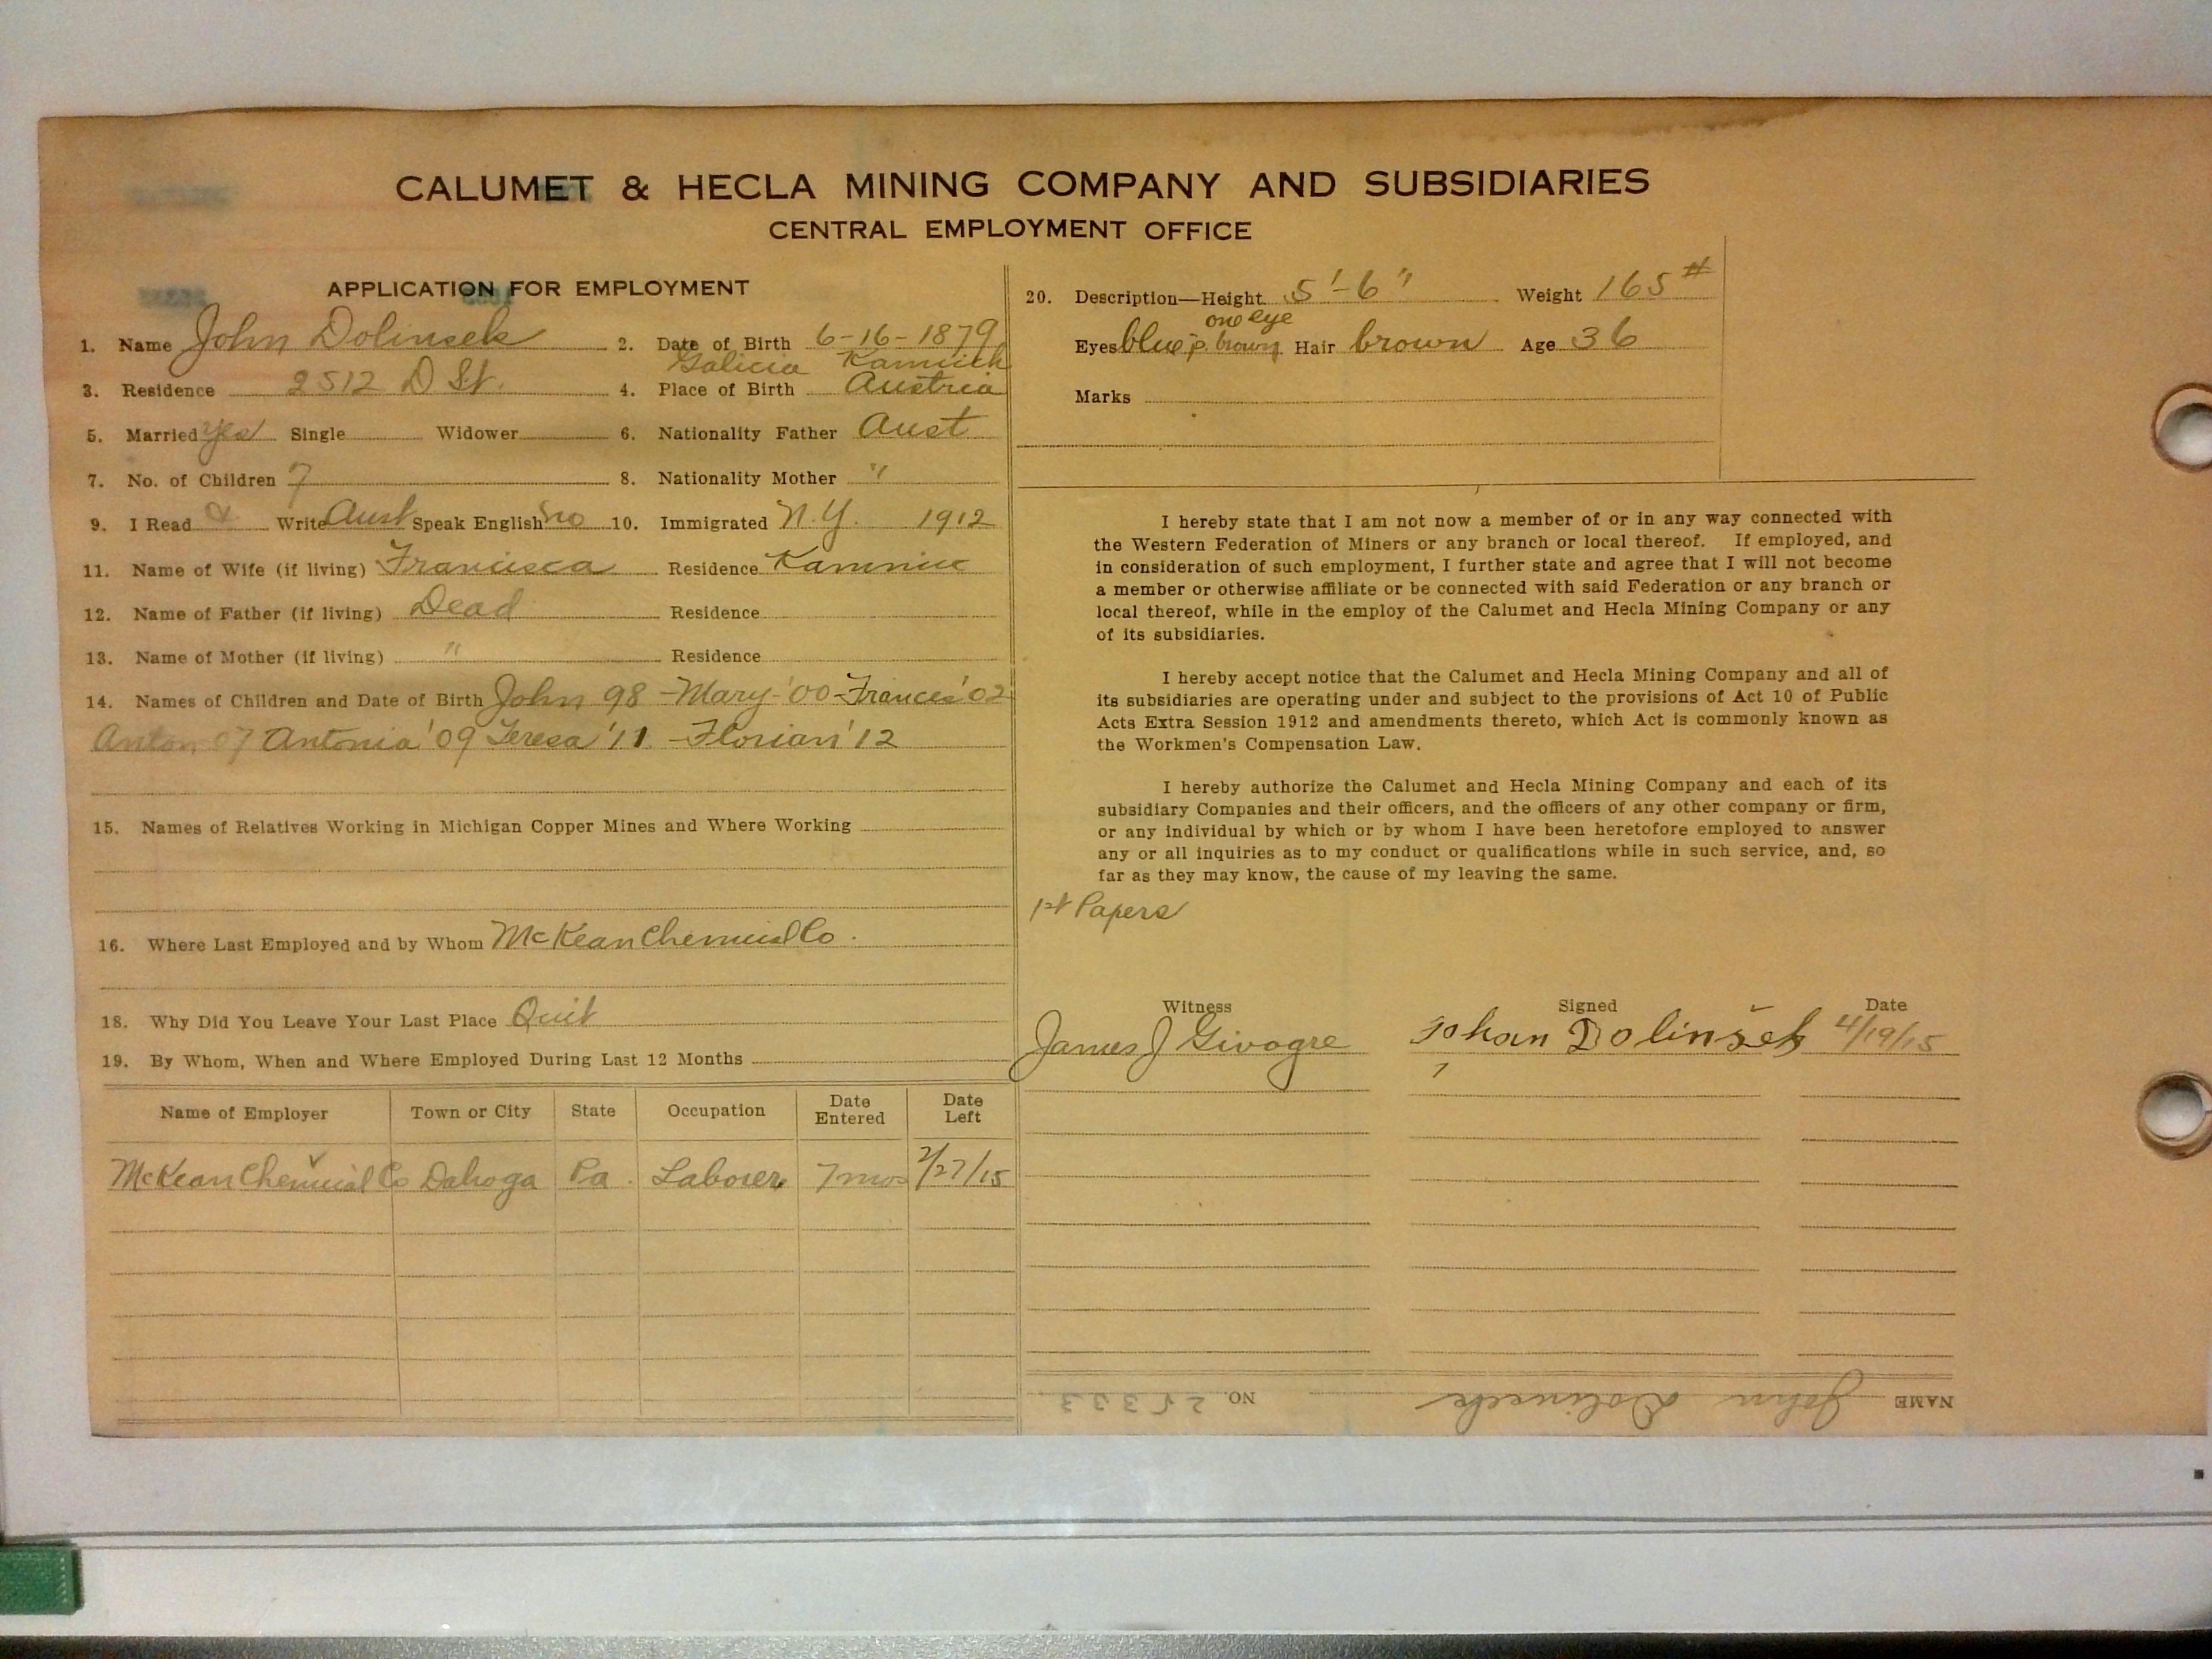 CALUMET & HECLA MINING COMPANY AND SUBSIDIARIES
CENTRAL EMPLOYMENT OFFICE
APPLICATION FOR EMPLOYMENT
1. Name John Dolinsek 2. Date of Birth 6-16-1879
Galicia Kamnick
3. Residence 2512 D St. 4. Place of Birth Austria
5. Married yes Single Widower 6. Nationality Father Aust
7. No. of Children 7 8. Nationality Mother "
9. I Read & Write Aust Speak English no 10. Immigrated N.Y. 1912
11. Name of Wife (if living) Francisca Residence Kamnic
12. Name of Father (if living) Dead Residence
13. Name of Mother (if living) " Residence
14. Names of Children and Date of Birth John 98 - Mary - '00 - Frances '02
Anton 07 Antonia '09 Teresa '11 - Florian '12
15. Names of Relatives Working in Michigan Copper Mines and Where Working
16. Where Last Employed and by Whom McKean Chemical Co.
18. Why Did You Leave Your Last Place Quit
19. By Whom, When and Where Employed During Last 12 Months
Name of Employer Town or City State Occupation Date Entered Date Left
McKean Chemical Co Dahoga Pa. Laborer 7 mos 2/27/15
20. Description—Height 5'-6" Weight 165#
one eye
Eyes blue p. brown Hair brown Age 36
Marks
I hereby state that I am not now a member of or in any way connected with
the Western Federation of Miners or any branch or local thereof. If employed, and
in consideration of such employment, I further state and agree that I will not become
a member or otherwise affiliate or be connected with said Federation or any branch or
local thereof, while in the employ of the Calumet and Hecla Mining Company or any
of its subsidiaries.
I hereby accept notice that the Calumet and Hecla Mining Company and all of
its subsidiaries are operating under and subject to the provisions of Act 10 of Public
Acts Extra Session 1912 and amendments thereto, which Act is commonly known as
the Workmen's Compensation Law.
I hereby authorize the Calumet and Hecla Mining Company and each of its
subsidiary Companies and their officers, and the officers of any other company or firm,
or any individual by which or by whom I have been heretofore employed to answer
any or all inquiries as to my conduct or qualifications while in such service, and, so
far as they may know, the cause of my leaving the same.
1st Papers
Witness Signed Date
James J Givogre Johan Dolinšek 4/19/15
NAME John Dolinsek NO. 25333